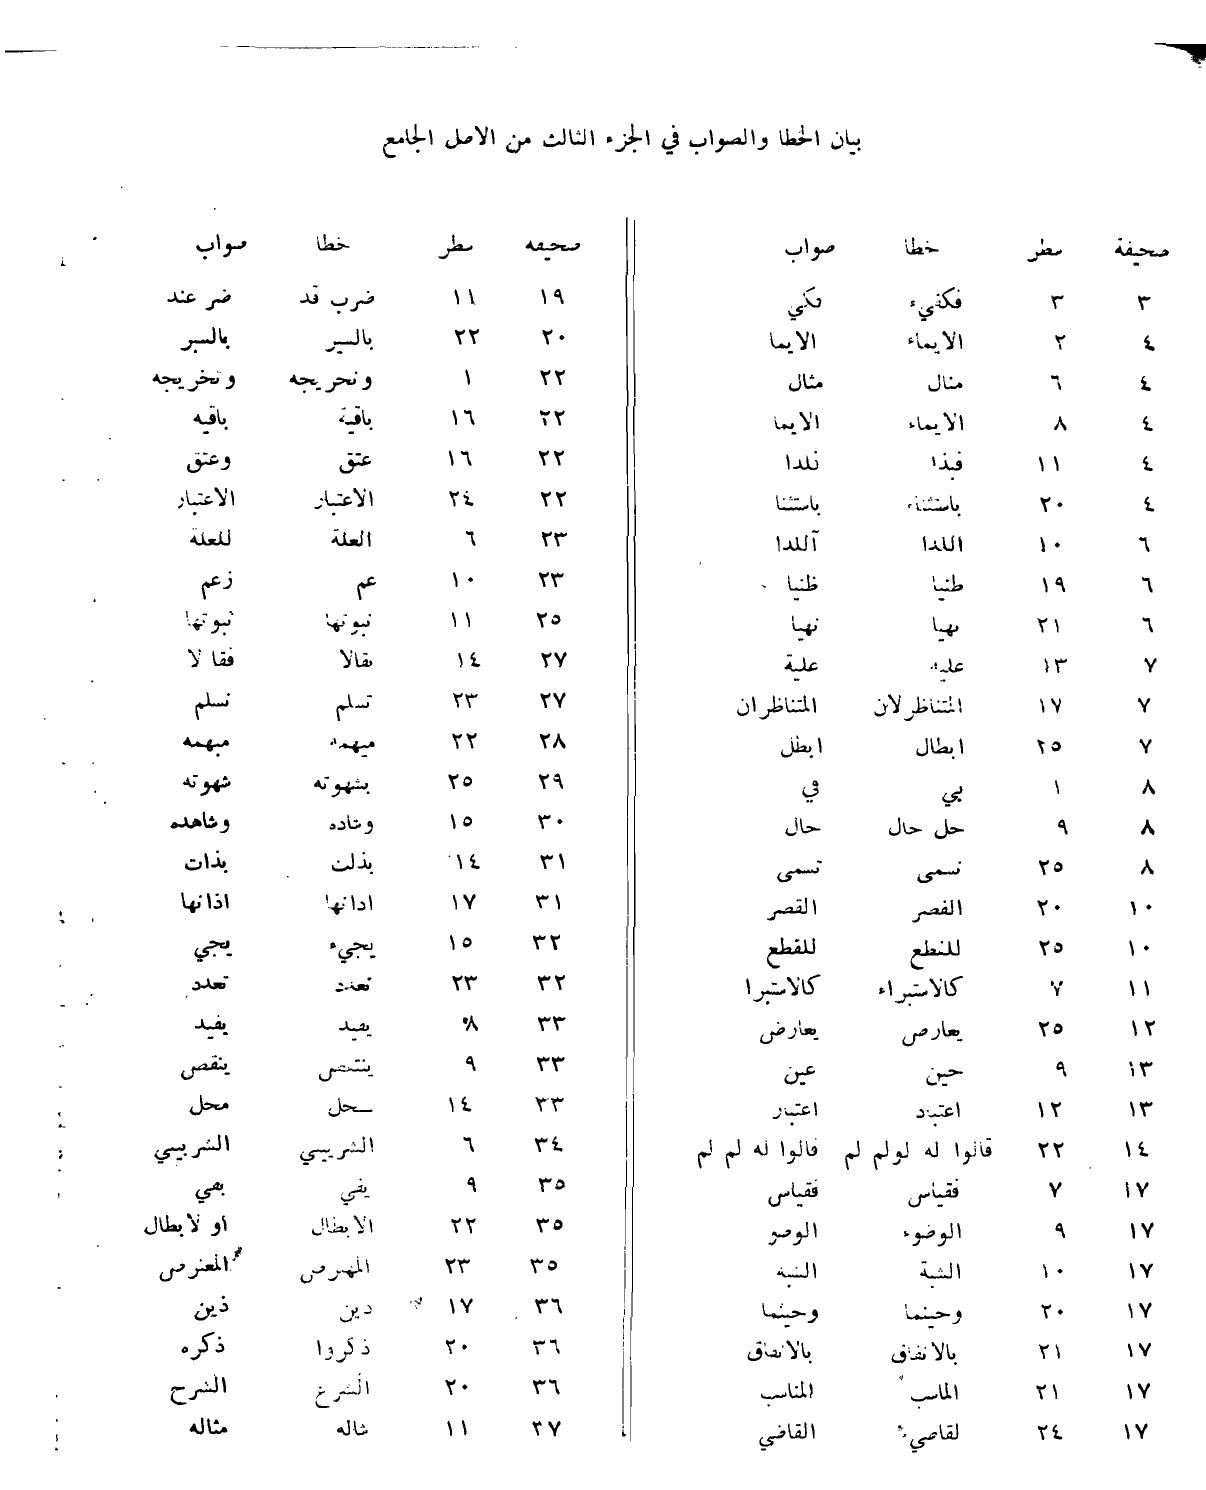 بيان الخطا والصواب في الجزء الثالث من الاصل الجامع
صحيفة سطر خطا صواب
٣ ٣ فكفيء فكفي
٤ ٢ الايماء الايما
٤ ٦ منال مثال
٤ ٨ الايماء الايما
٤ ١١ فبذا نلدا
٤ ٢٠ باستثناء باستثنا
٦ ١٠ اللدا آللدا
٦ ١٩ طنيا ظنيا
٦ ٢١ بهيا نهيا
٧ ١٣ عليه علية
٧ ١٧ المتناظرلان المتناظران
٧ ٢٥ ابطال ابطل
٨ ١ بي في
٨ ٩ حل حال حال
٨ ٢٥ نسمى تسمى
١٠ ٢٠ الفصر القصر
١٠ ٢٥ للنطع للقطع
١١ ٧ كالاستبراء كالاستبرا
١٢ ٢٥ يعارص يعارض
١٣ ٩ حين عين
١٣ ١٢ اعتبد اعتبار
١٤ ٢٢ قالوا له لولم لم قالوا له لم لم
١٧ ٧ فقياس فقياس
١٧ ٩ الوضوء الوضو
١٧ ١٠ الشبة الشبه
١٧ ٢٠ وحينما وحيثما
١٧ ٢١ بالانفاق بالاتفاق
١٧ ٢١ الماسب المناسب
١٧ ٢٤ لقاصي القاضي
صحيفه سطر خطا صواب
١٩ ١١ ضرب قد ضر عند
٢٠ ٢٢ بالسير بالسبر
٢٢ ١ ونحريجه وتخريجه
٢٢ ١٦ باقية باقيه
٢٢ ١٦ عتق وعتق
٢٢ ٢٤ الاعتبار الاعتبار
٢٣ ٦ العلة للعلة
٢٣ ١٠ عم زعم
٢٥ ١١ نبوتها ثبوتها
٢٧ ١٤ نقالا فقالا
٢٧ ٢٣ تسلم نسلم
٢٨ ٢٢ ميهمه مبهمه
٢٩ ٢٥ بشهوته شهوته
٣٠ ١٥ وشاده وشاهده
٣١ ١٤ بذلت بذات
٣١ ١٧ ادانها اذانها
٣٢ ١٥ يجيء يجي
٣٢ ٢٣ تعدد تعدد
٣٣ ٨ يفيد يفيد
٣٣ ٩ ينتص ينقص
٣٣ ١٤ سحل محل
٣٤ ٦ الشربيي الشربيني
٣٥ ٩ يفي بقي
٣٥ ٢٢ الابطال او لابطال
٣٥ ٢٣ المهرص المعترض
٣٦ ١٧ دين ذين
٣٦ ٢٠ ذكروا ذكره
٣٦ ٢٠ الشرع الشرح
٣٧ ١١ ثاله مثاله